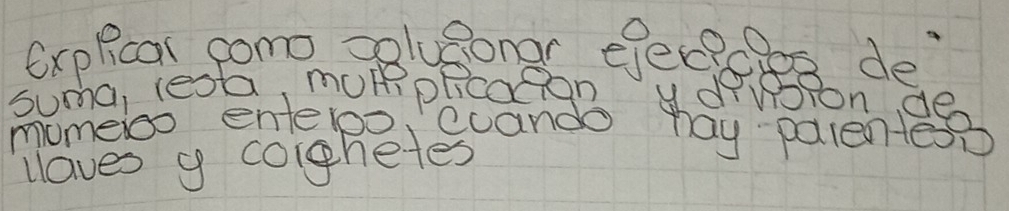 Explicar como solucionar ejercicios de
suma, resta, multiplicacion y division de
numeros enteros, cuando hay parentesis
llaves y corchetes